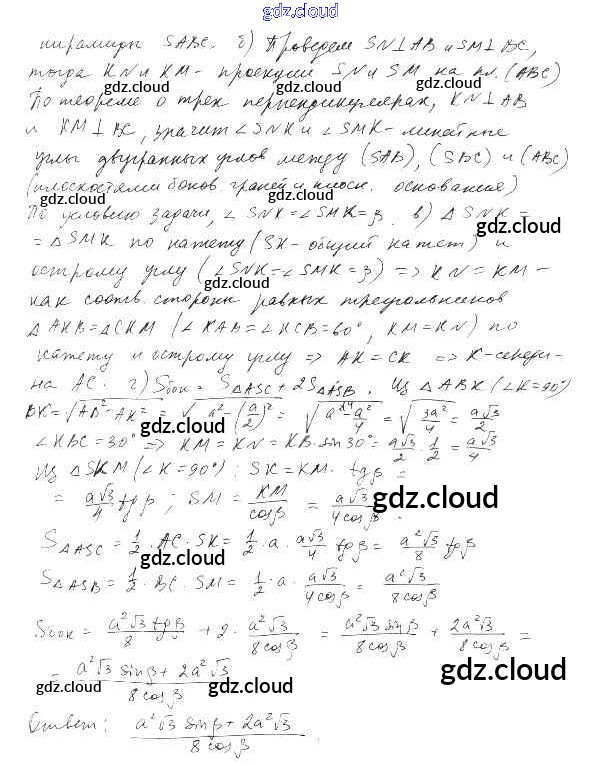 gdz.cloud
пирамиды SABC. б) Проведем SN⊥AB и SM⊥BC,
тогда KN и KM - проекции SN и SM на пл. (ABC)
По теореме о трех перпендикулярах, KN⊥AB
и KM⊥BC, значит ∠SNK и ∠SMK - линейные
углы двугранных углов между (SAB), (SBC) и (ABC)
(плоскостями боков. граней и плоск. основания)
По условию задачи, ∠SNK=∠SMK=β. в) △SNK=
=△SMK по катету (SK-общий катет) и
острому углу (∠SNK=∠SMK=β) => KN=KM-
как соотв. стороны равных треугольников
△AKB=△CKM (∠KAB=∠KCB=60°, KM=KN) по
катету и острому углу => AK=CK => K-середи-
на AC. г) Sбок = S△ASC + 2S△ASB. Из △ABK (∠K=90°)
BK=√(AB²-AK²) = √(a²-(a/2)²) = √(a²-a²/4) = √(3a²/4) = a√3/2
∠KBC=30° => KM=KN=KB·sin30°= a√3/2 · 1/2 = a√3/4
Из △SKM (∠K=90°): SK=KM·tgβ =
= a√3/4 tgβ; SM = KM/cosβ = a√3/4cosβ.
S△ASC = 1/2·AC·SK = 1/2·a·a√3/4 tgβ = a²√3/8 tgβ
S△ASB = 1/2·BC·SM = 1/2·a·a√3/4cosβ = a²√3/8cosβ
Sбок = a²√3 tgβ/8 + 2·a²√3/8cosβ = a²√3 sinβ/8cosβ + 2a²√3/8cosβ =
= a²√3 sinβ+2a²√3/8cosβ
Ответ: a²√3 sinβ+2a²√3/8cosβ.
gdz.cloud